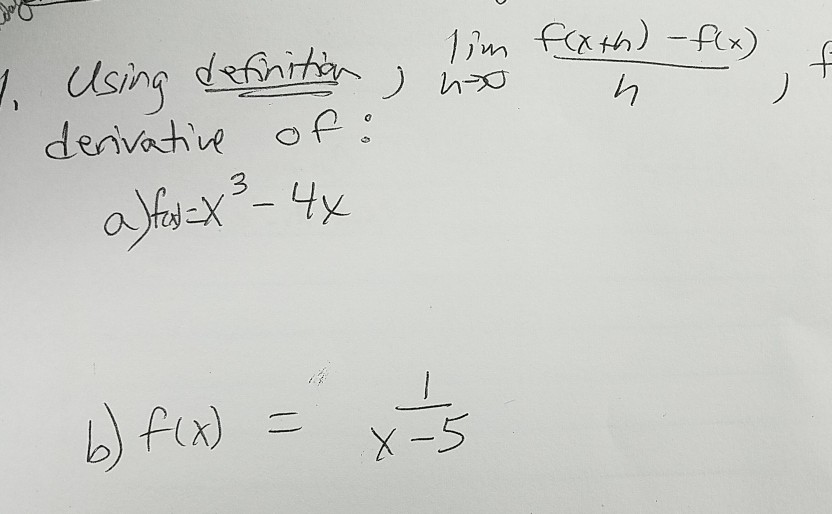 1. Using definition, lim h→0 f(x+h) - f(x) / h, f
derivative of:
a) f(x)=x³ - 4x
b) f(x) = 1 / x-5